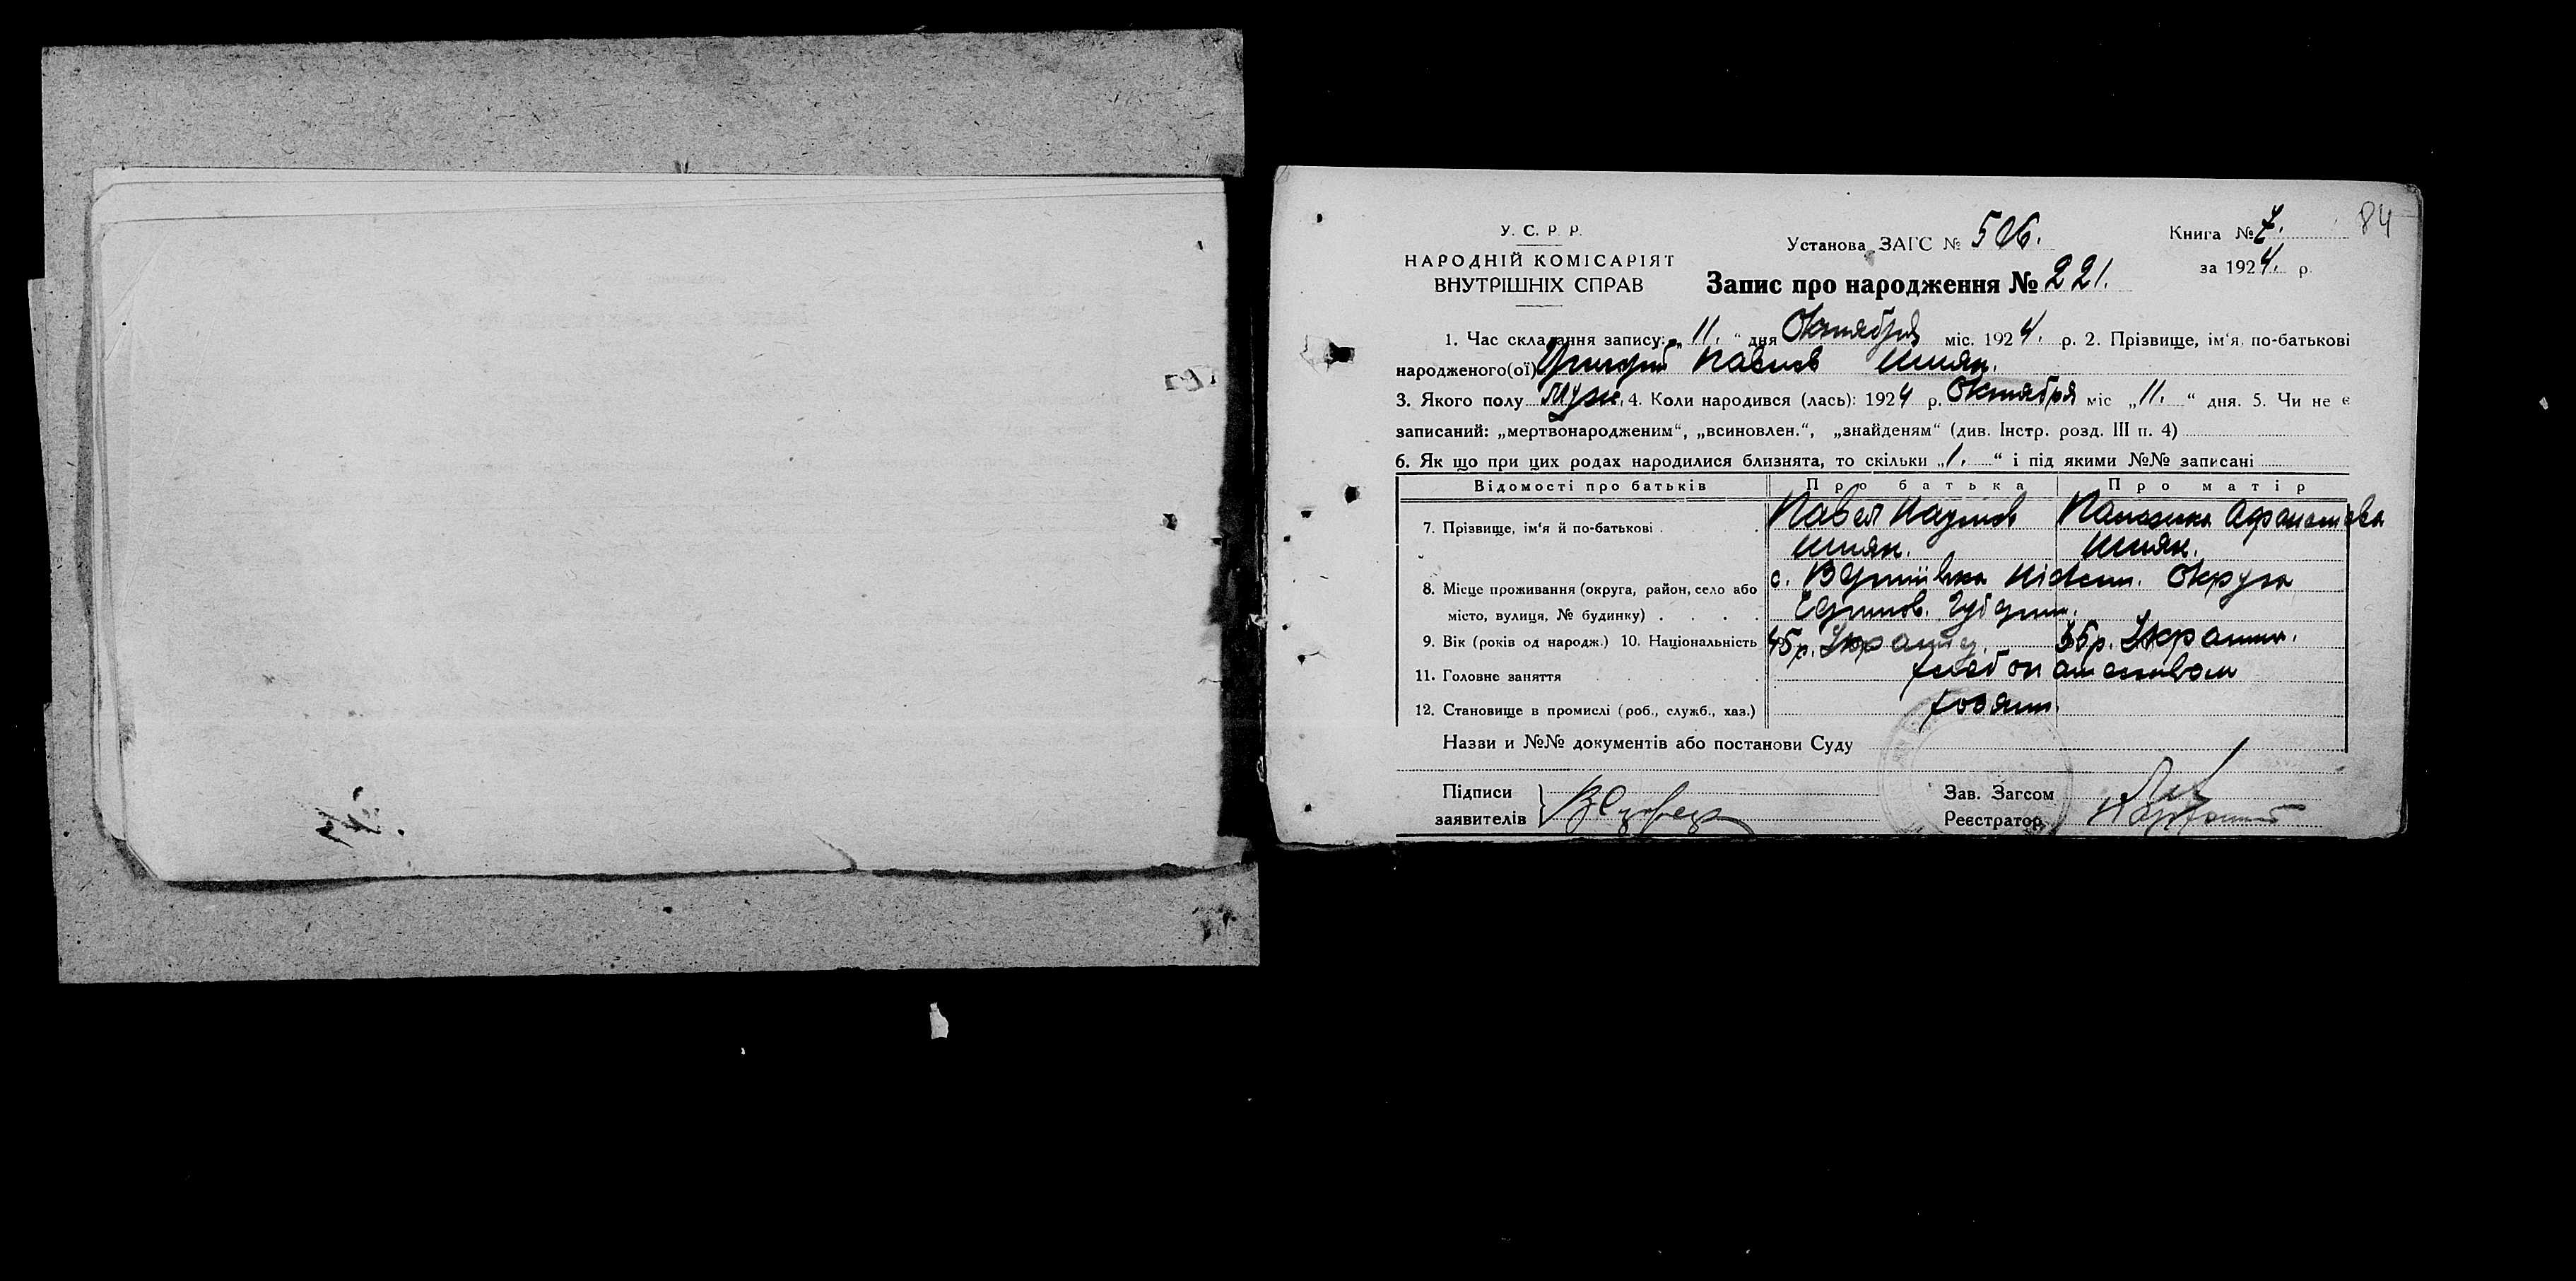 84
У. С. Р. Р.
НАРОДНІЙ КОМІСАРІЯТ
ВНУТРІШНІХ СПРАВ
Установа ЗАГС №
Книга № 7.
за 1924. р.
Запис про народження № 221.
1. Час складання запису: „11.“ дня Октября міс. 1924. р. 2. Прізвище, ім'я, по-батькові
народженого(ої) Григорій Павлов
3. Якого полу Муж. 4. Коли народився (лась): 1924 р. Октября міс „11.“ дня. 5. Чи не є
записаний: „мертвонародженим“, „всиновлен.“, „знайденям“ (див. Інстр. розд. III п. 4)
6. Як що при цих родах народилися близнята, то скільки „1.“ і під якими №№ записані
Відомості про батьків Про батька Про матір
7. Прізвище, ім'я й по-батькові Павел Наумов
8. Місце проживання (округа, район, село або с. Вертіївка Ніжен. Округа
місто, вулиця, № будинку) Губерни.
9. Вік (років од народж.) 10. Національність 45 р. 35 р.
11. Головне заняття
12. Становище в промислі (роб., служб., хаз.) хозяин.
Назви и №№ документів або постанови Суду
Підписи
заявителів
Зав. Загсом
Реєстратор